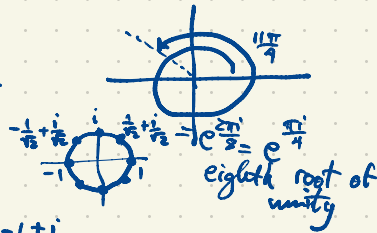 11π/4
-1/√2 + i/√2 i 1/√2 + i/√2 = e^(2πi/8) = e^(πi/4)
-1 1
eighth root of
unity
-1+i